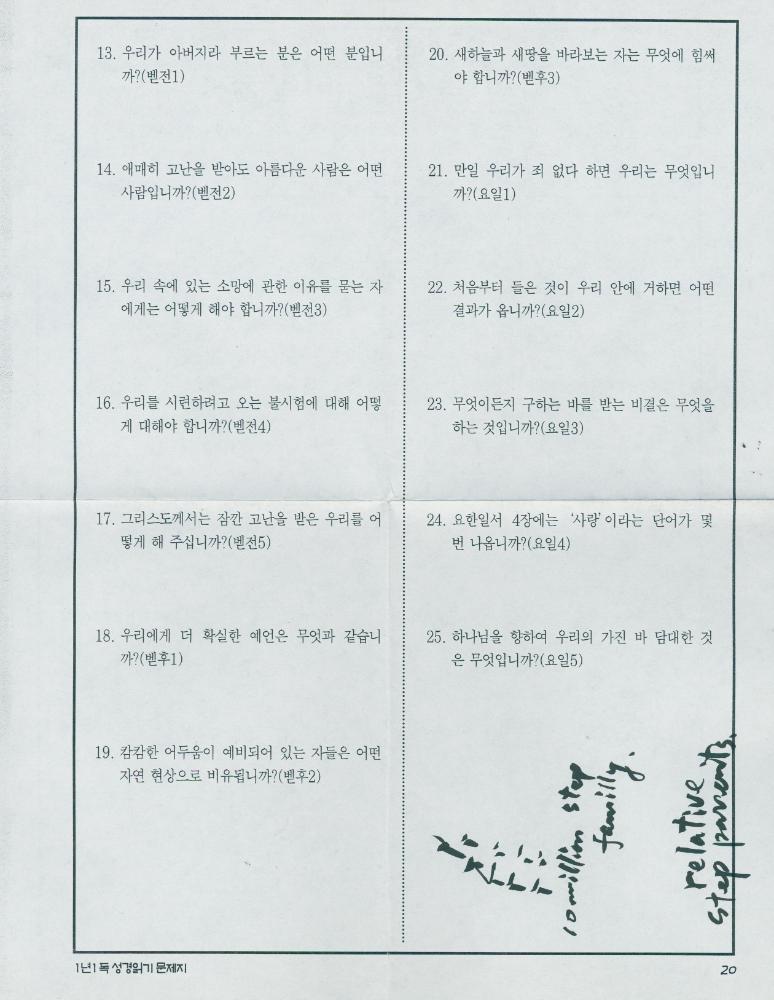 13. 우리가 아버지라 부르는 분은 어떤 분입니
까?(벧전1)
14. 애매히 고난을 받아도 아름다운 사람은 어떤
사람입니까?(벧전2)
15. 우리 속에 있는 소망에 관한 이유를 묻는 자
에게는 어떻게 해야 합니까?(벧전3)
16. 우리를 시련하려고 오는 불시험에 대해 어떻
게 대해야 합니까?(벧전4)
17. 그리스도께서는 잠깐 고난을 받은 우리를 어
떻게 해 주십니까?(벧전5)
18. 우리에게 더 확실한 예언은 무엇과 같습니
까?(벧후1)
19. 캄캄한 어두움이 예비되어 있는 자들은 어떤
자연 현상으로 비유됩니까?(벧후2)
20. 새하늘과 새땅을 바라보는 자는 무엇에 힘써
야 합니까?(벧후3)
21. 만일 우리가 죄 없다 하면 우리는 무엇입니
까?(요일1)
22. 처음부터 들은 것이 우리 안에 거하면 어떤
결과가 옵니까?(요일2)
23. 무엇이든지 구하는 바를 받는 비결은 무엇을
하는 것입니까?(요일3)
24. 요한일서 4장에는 '사랑'이라는 단어가 몇
번 나옵니까?(요일4)
25. 하나님을 향하여 우리의 가진 바 담대한 것
은 무엇입니까?(요일5)
10 million step
familly.
relative
step parents.
1년1독 성경읽기 문제지
20